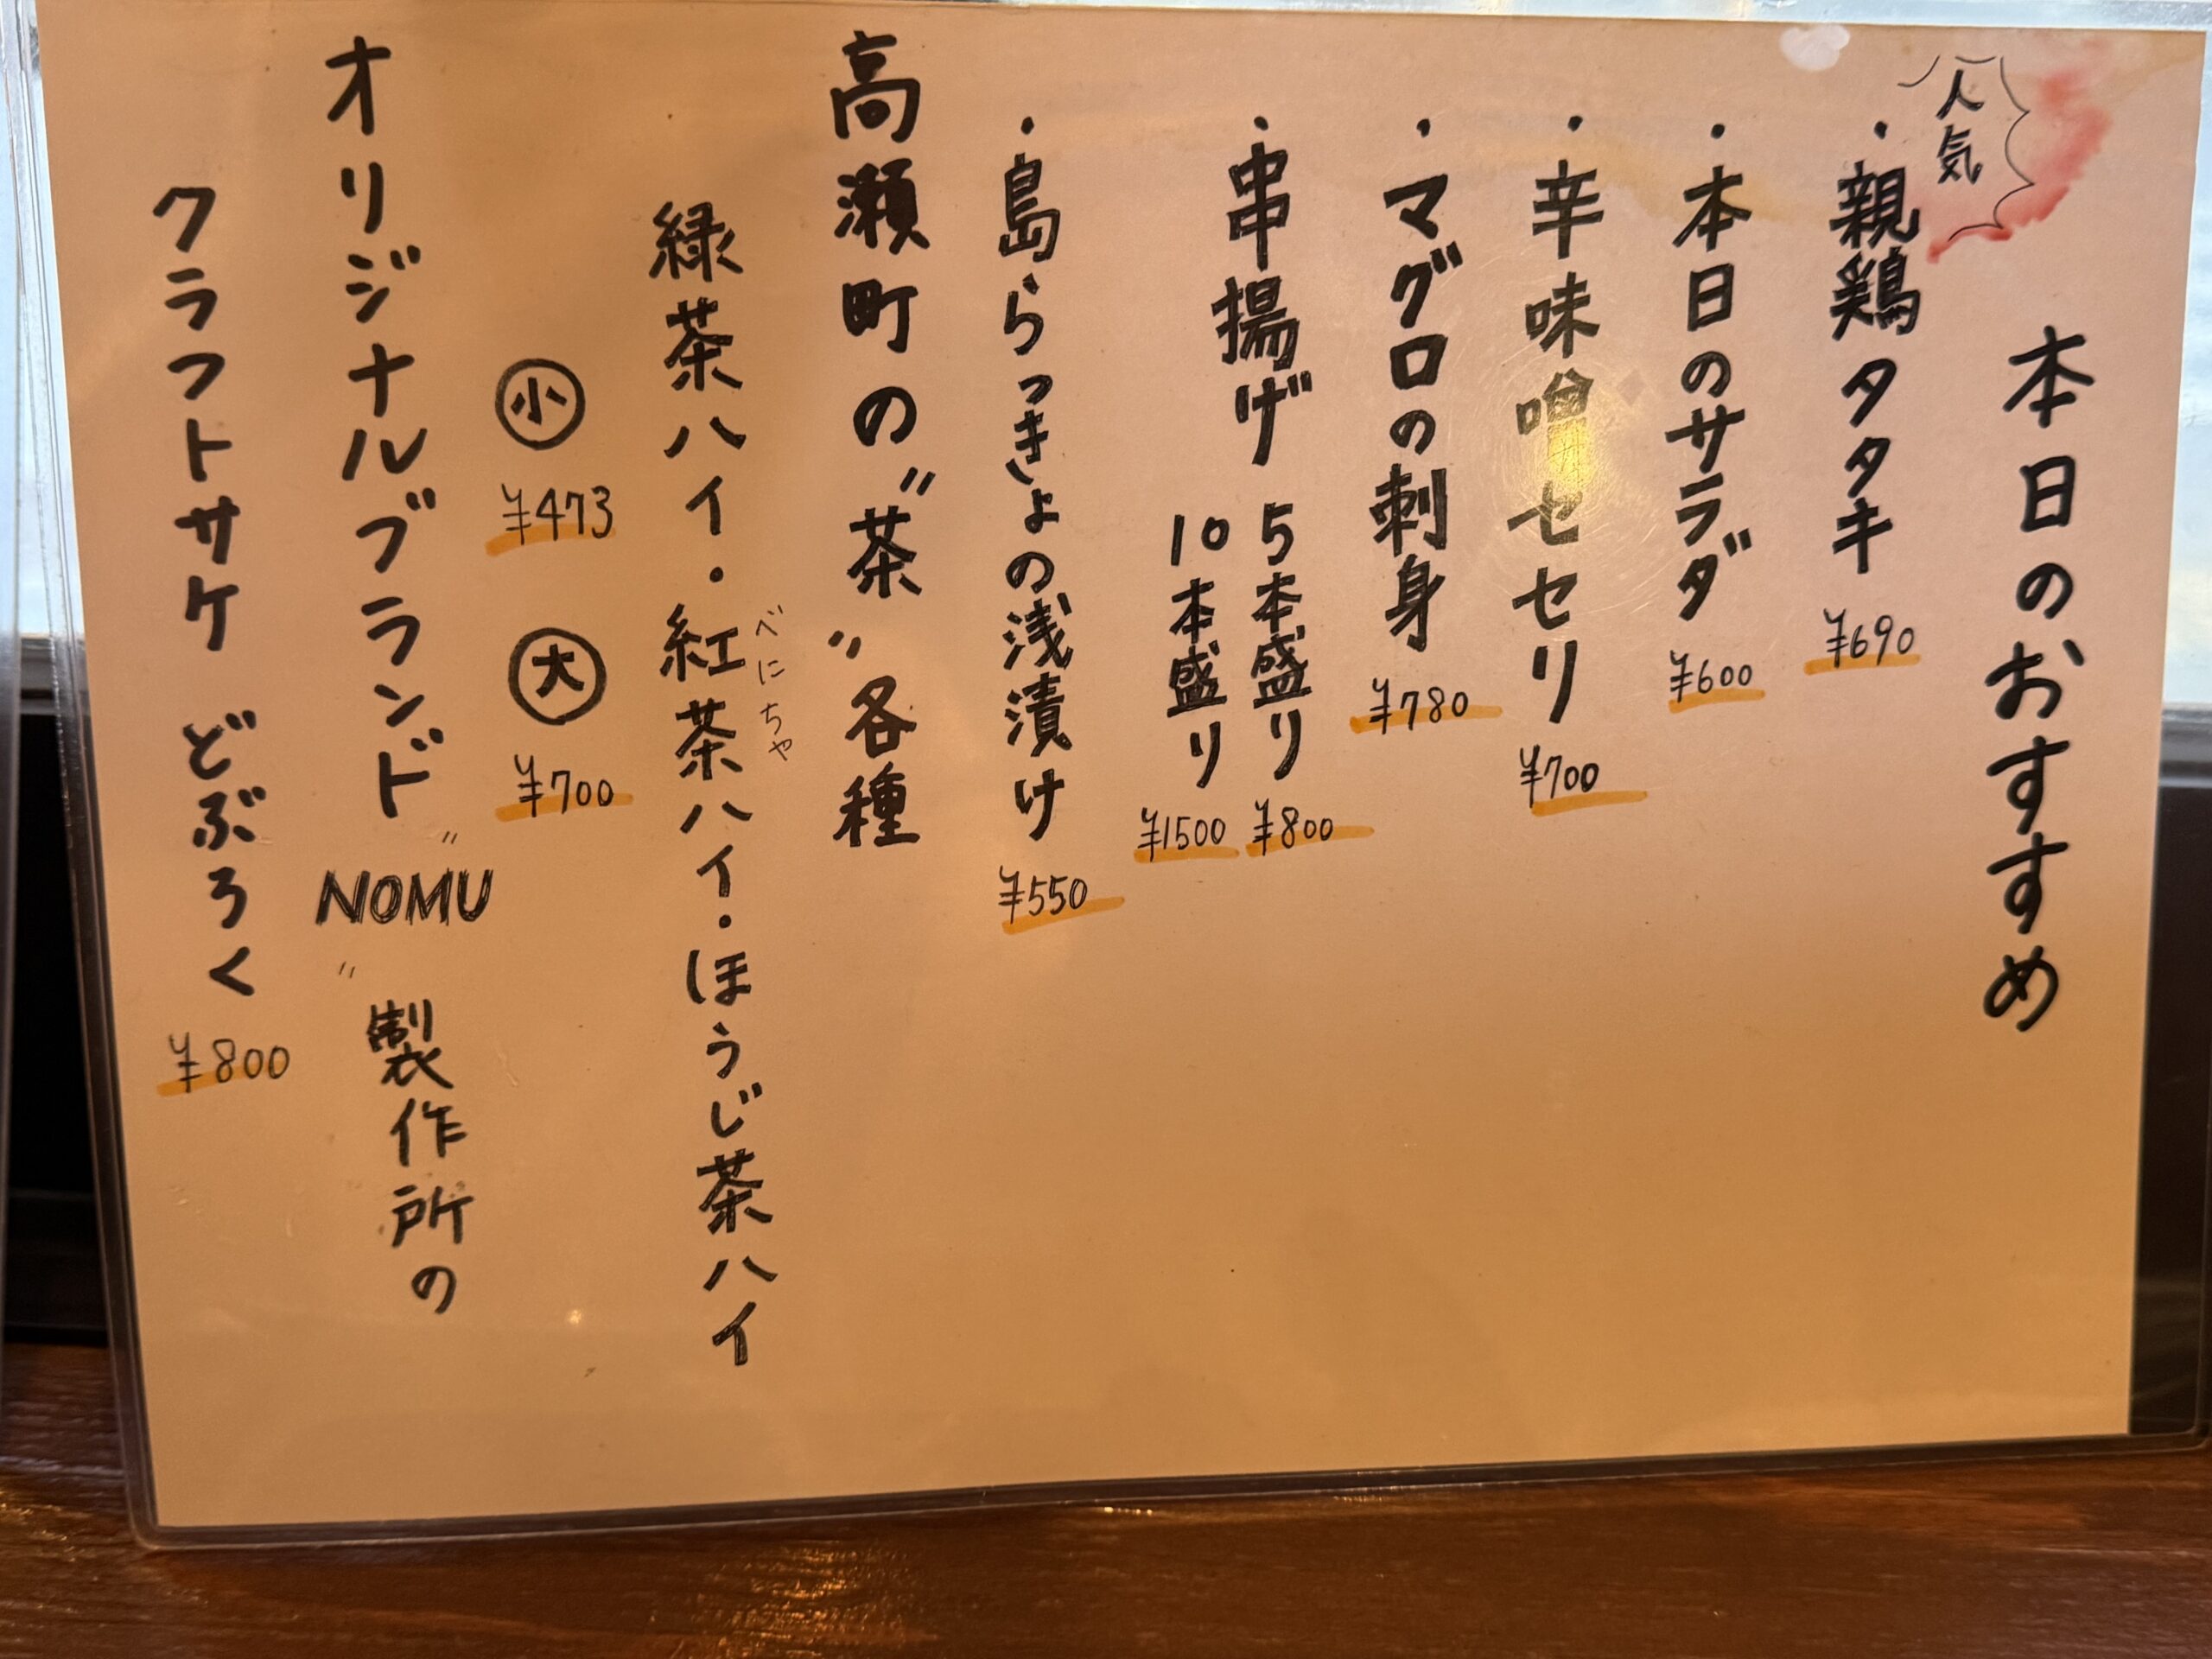 本日のおすすめ
人気
・親鶏タタキ ¥690
・本日のサラダ ¥600
・辛味噌セセリ ¥700
・マグロの刺身 ¥780
・串揚げ 5本盛り ¥800
10本盛り ¥1500
・島らっきょの浅漬け ¥550
高瀬町の〝茶〟各種
緑茶ハイ・紅茶ハイ・ほうじ茶ハイ
べにちゃ
小 ¥473 大 ¥700
オリジナルブランド〝NOMU〟製作所の
クラフトサケ どぶろく ¥800